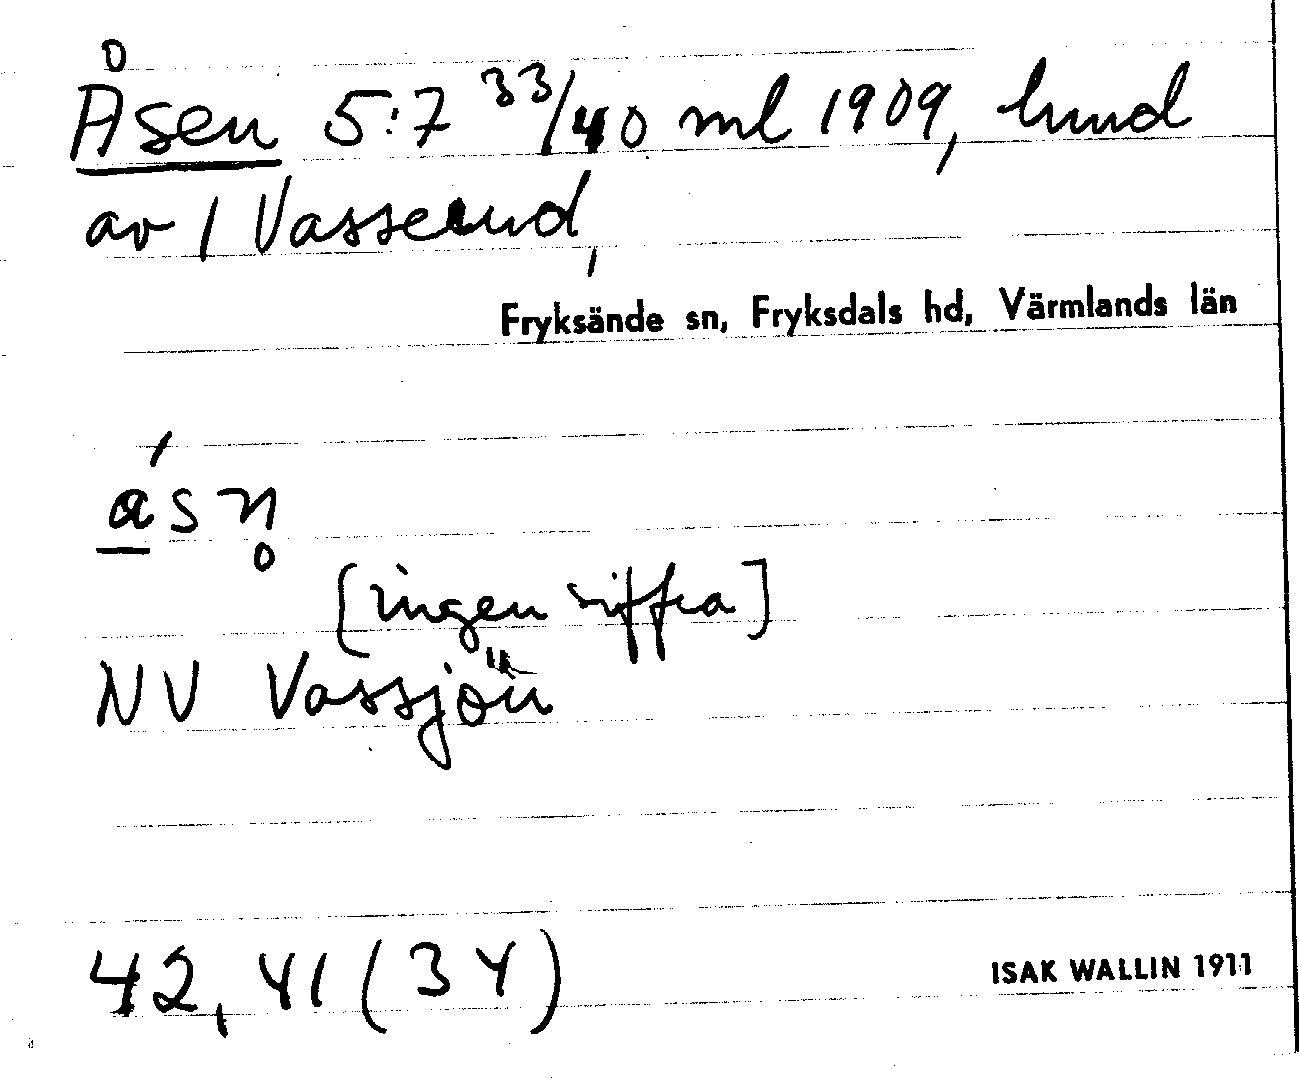 Åsen 5:7 33/40 ml 1909, hmd
av 1 Vasserud,
Fryksände sn, Fryksdals hd, Värmlands län
ásn̥
[ingen siffra]
NV Vassjön
42, 41 (34)
ISAK WALLIN 1911